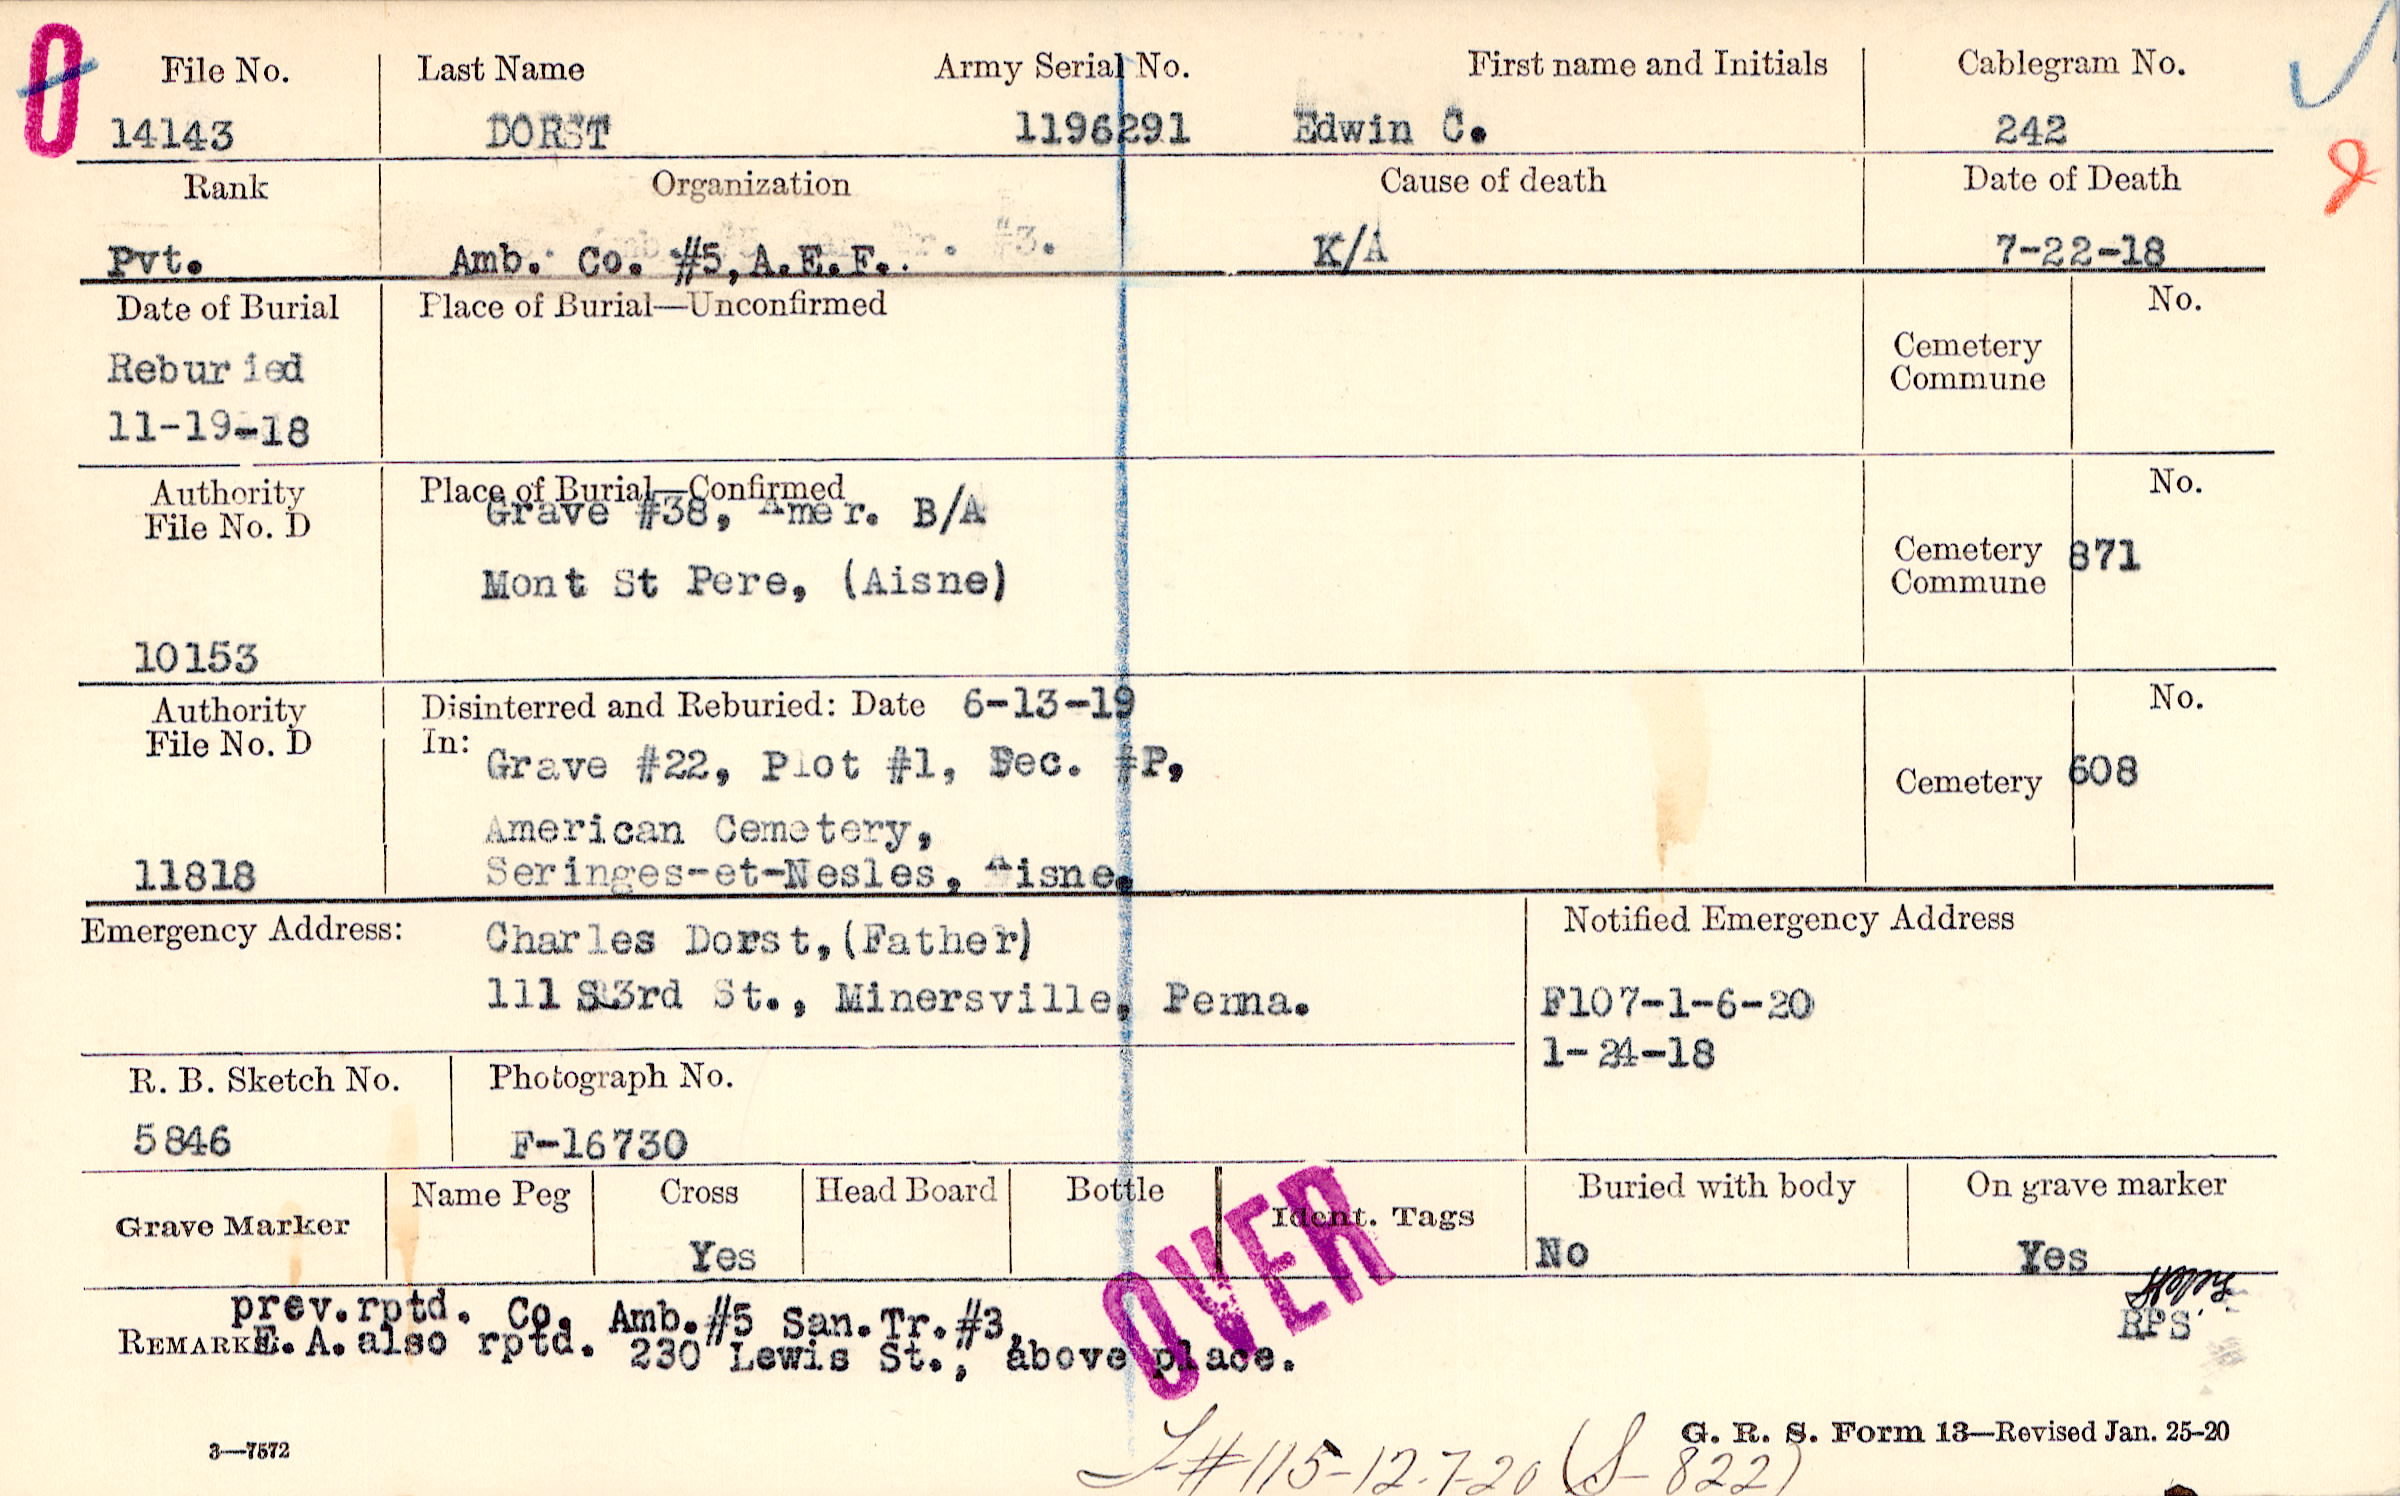 0
File No. Last Name Army Serial No. First name and Initials Cablegram No.
14143 DORST 1196291 Edwin C. 242
Rank Organization Cause of death Date of Death
Pvt. Amb. Co. #5, A.E.F. K/A 7-22-18
Date of Burial Place of Burial—Unconfirmed No.
Reburied
11-19-18
Cemetery
Commune
Authority Place of Burial—Confirmed No.
File No. D Grave #38, Amer. B/A
Mont St Pere, (Aisne)
Cemetery
Commune 871
10153
Authority Disinterred and Reburied: Date 6-13-19 No.
File No. D In: Grave #22, Plot #1, Sec. #P,
Cemetery 608
American Cemetery,
11818 Seringes-et-Nesles, Aisne.
Emergency Address: Charles Dorst,(Father) Notified Emergency Address
111 S 3rd St., Minersville, Penna. F107-1-6-20
1-24-18
R. B. Sketch No. Photograph No.
5846 F-16730
Grave Marker Name Peg Cross Head Board Bottle Ident. Tags Buried with body On grave marker
Yes No Yes
OVER
prev.rptd. Co. Amb.#5 San.Tr.#3,
REMARKS E. A. also rptd. 230 Lewis St., above place.
RPS
3—7572
G. R. S. Form 13—Revised Jan. 25-20
#115-12-7-20 (S-822)